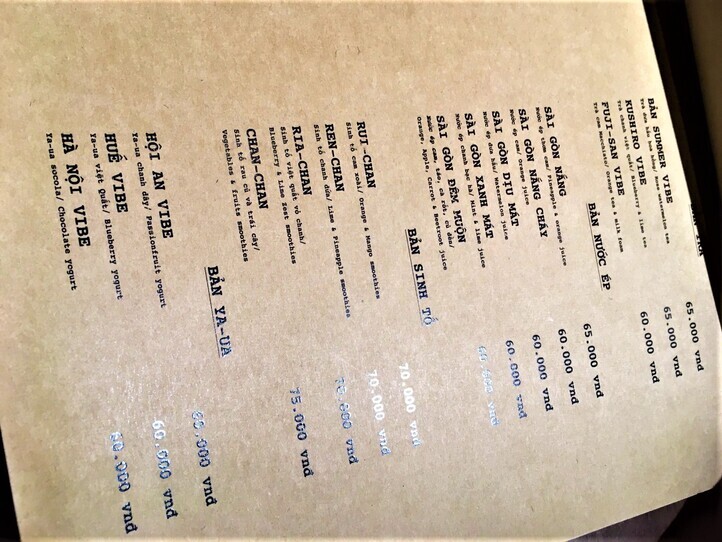 BẢN TRÀ
BẢN SUMMER VIBE 65.000 vnđ
Trà dưa hấu hoa hồng/ Rose watermelon tea
KUSHIRO VIBE 65.000 vnđ
Trà chanh việt quất/ Blueberry & lime tea
FUJI-SAN VIBE 60.000 vnđ
Trà cam Macchiato/ Orange tea & milk foam
BẢN NƯỚC ÉP
SÀI GÒN NẮNG 65.000 vnđ
Nước ép thơm cam/ Pineapple & orange juice
SÀI GÒN NẮNG CHÁY 60.000 vnđ
Nước ép cam/ Orange juice
SÀI GÒN DỊU MÁT 60.000 vnđ
Nước ép dưa hấu/ Watermelon juice
SÀI GÒN XANH MÁT 60.000 vnđ
Nước ép chanh bạc hà/ Mint & lime juice
SÀI GÒN ĐÊM MUỘN 60.000 vnđ
Nước ép cam, táo, cà rốt, củ dền/
Orange, Apple, Carrot & Beetroot juice
BẢN SINH TỐ
RUI-CHAN 70.000 vnđ
Sinh tố cam xoài/ Orange & Mango smoothies
REN-CHAN 70.000 vnđ
Sinh tố chanh dứa/ Lime & Pineapple smoothies
RIA-CHAN 70.000 vnđ
Sinh tố việt quất vỏ chanh/
Blueberry & Lime Zest smoothies
CHAN-CHAN 75.000 vnđ
Sinh tố rau củ và trái cây/
Vegetables & fruits smoothies
BẢN YA-UA
HỘI AN VIBE 60.000 vnđ
Ya-ua chanh dây/ Passionfruit yogurt
HUẾ VIBE 60.000 vnđ
Ya-ua Việt Quất/ Blueberry yogurt
HÀ NỘI VIBE 60.000 vnđ
Ya-ua socola/ Chocolate yogurt